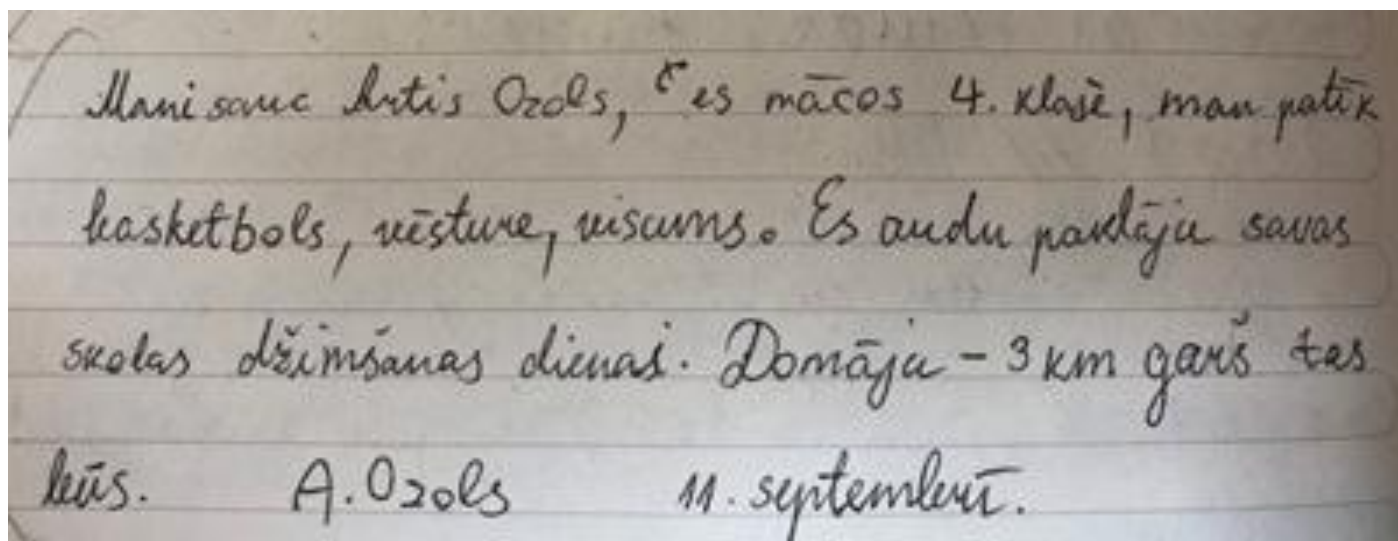 Mani sauc Artis Ozols, es mācos 4. klasē, man patīk
basketbols, vēsture, visums. Es audu paklāju savas
skolas džimšanas dienai. Domāju - 3 km garš tas
būs. A. Ozols 11. septembrī.